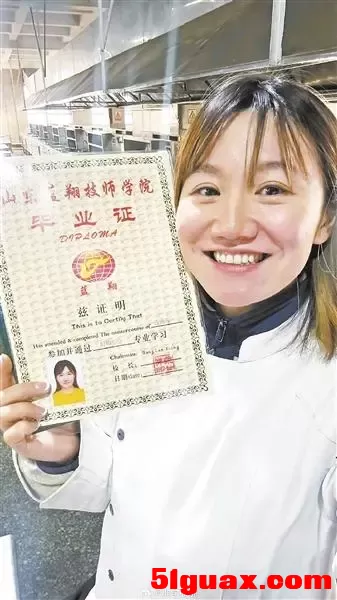 山东蓝翔技师学院
毕业证
DIPLOMA
蓝翔
兹证明
This is to Certify That
Has attended & completed the
参加并通过 专业学习
Chairman:
校长:
日期/date:
5lguax.com